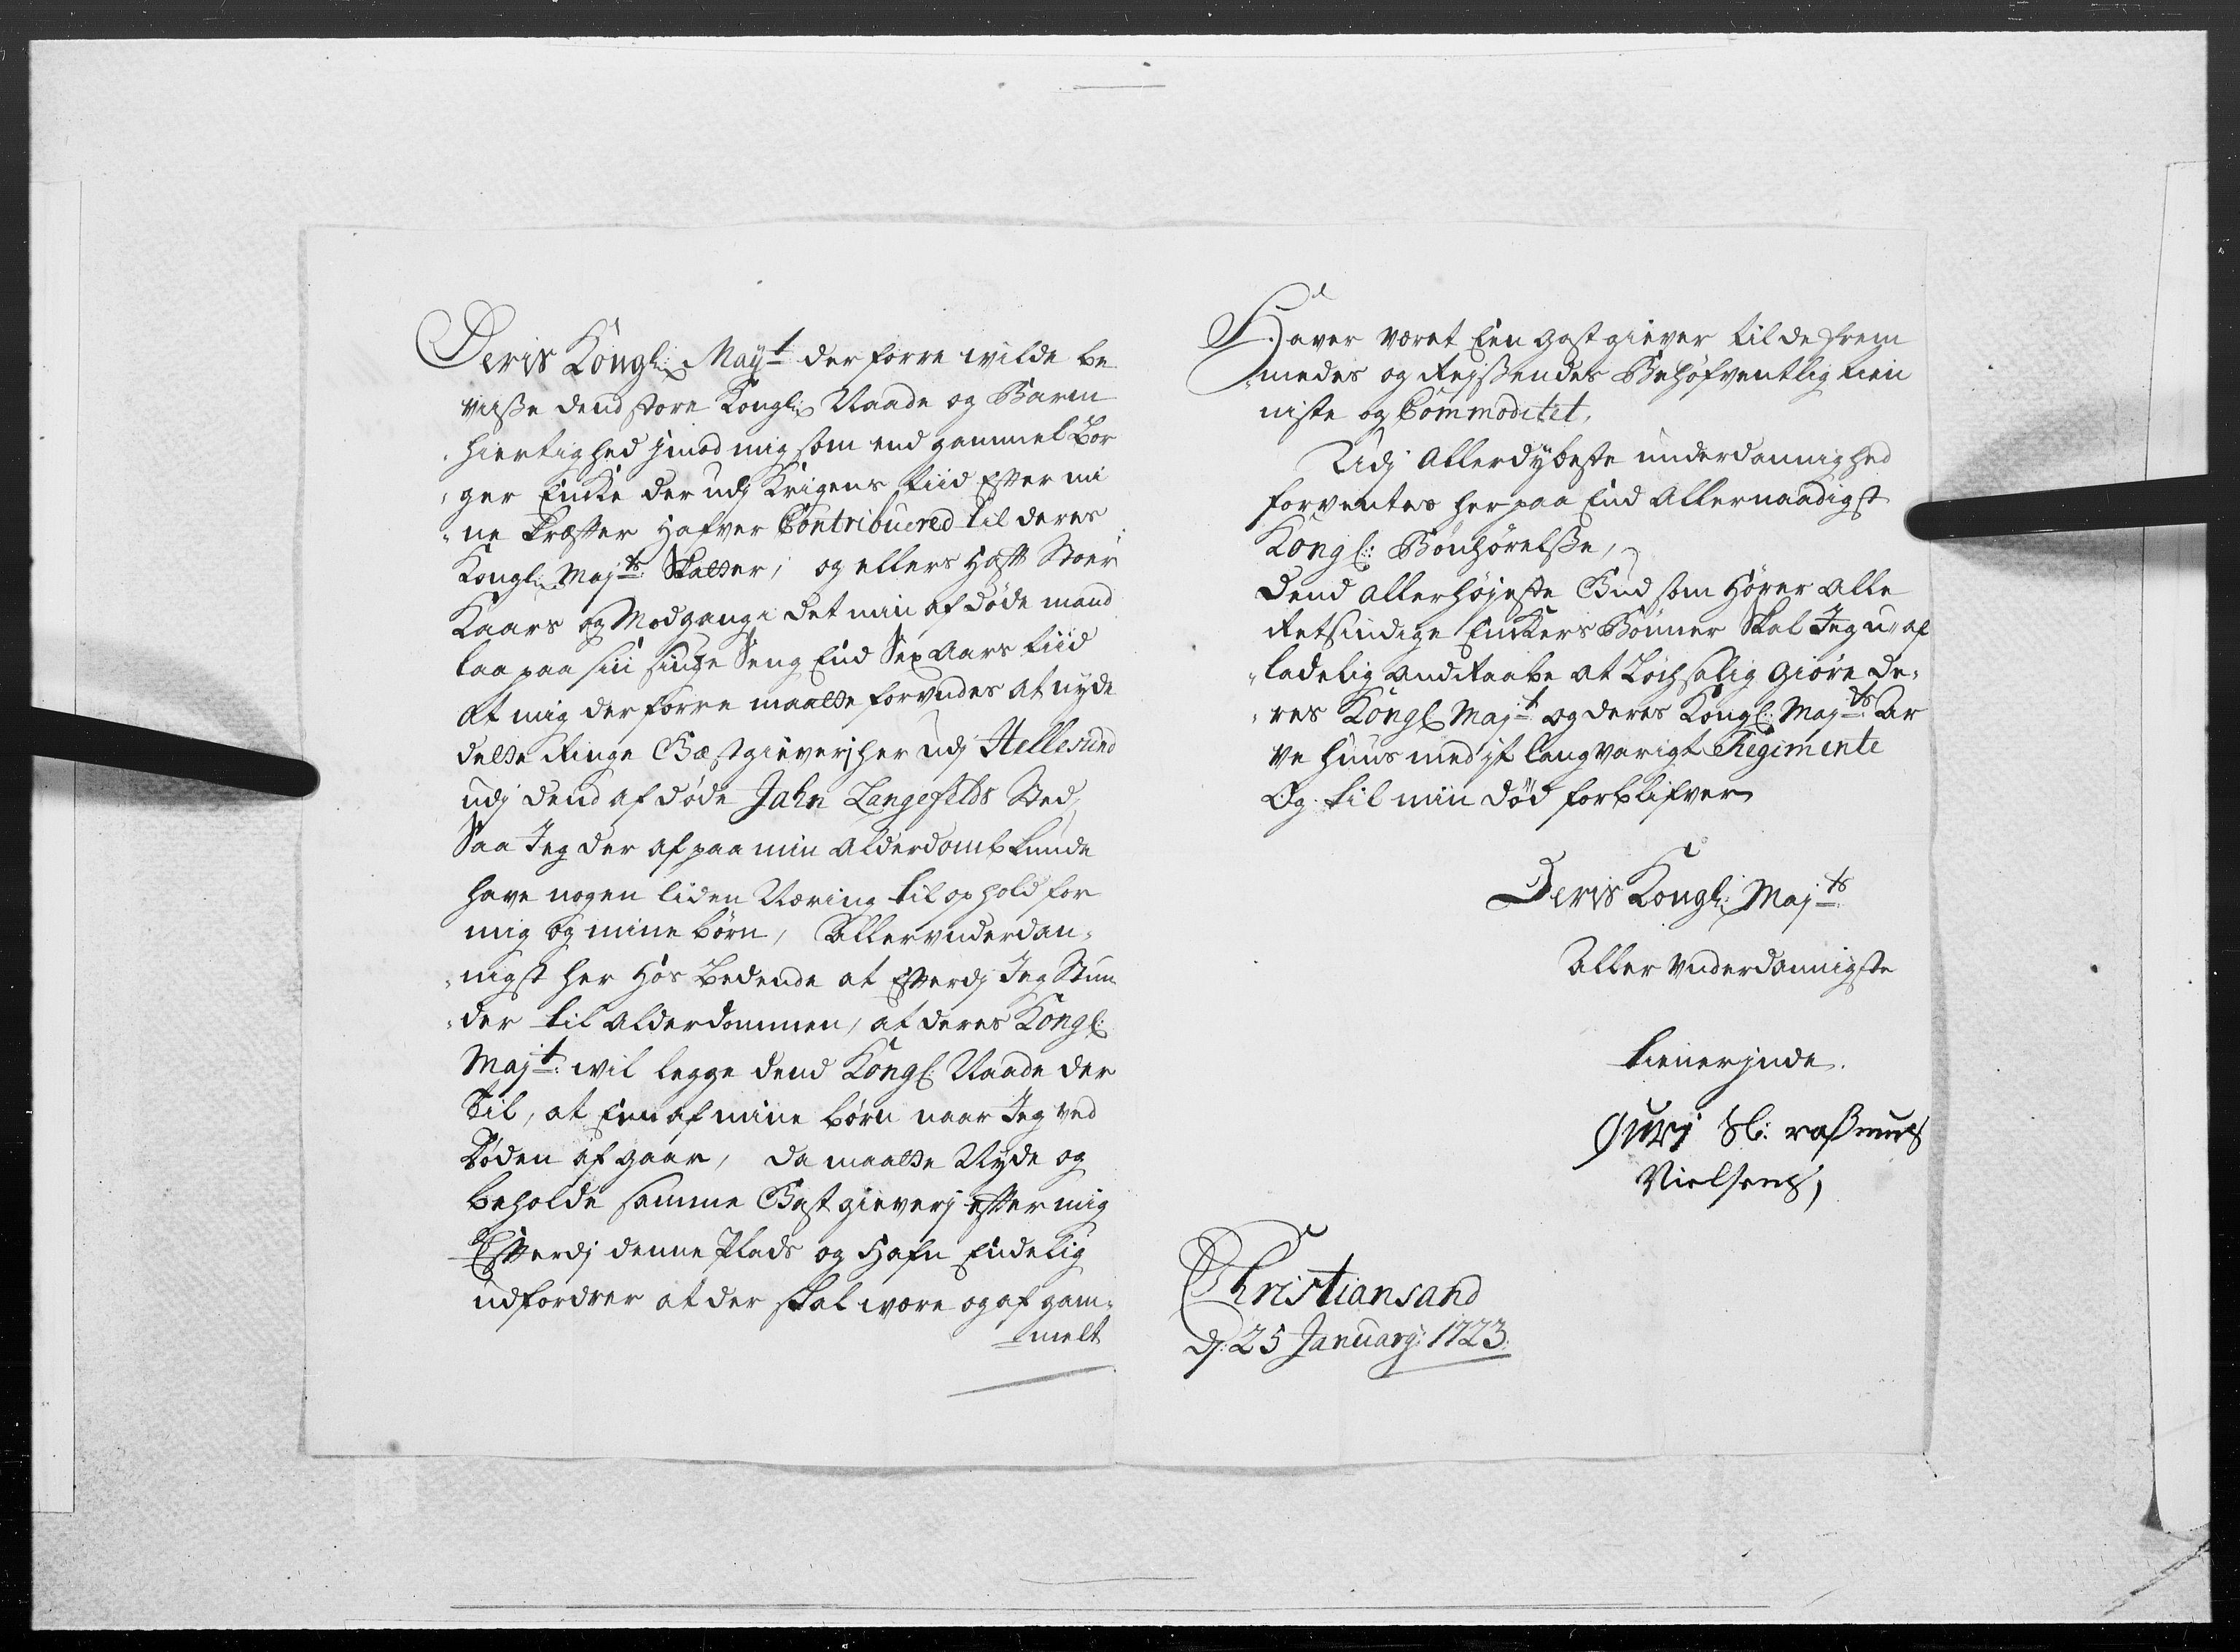 Deris Kongl: Mayt der forre wilde be
viisse dend store Kongl: Naade og Barm
hiertighed imod mig som end gammel Bor
ger Encke der udj Krigens tiid Efter mi
ne Kræfter Hafver Contribuered til deres
Kongl: Majts: Skatter, og ellers Haft Stoer
Kaars og Modgang i det min afdøde mand
laa paa sin siuge Seng End Sex Aars tiid
At mig der forre maatte forundes at nyde
dette Ringe Gæstgieverj her udj Hellesund
udj dend afdøde Jahn Langefelds Sted,
Saa Jeg der af paa min Alderdomb kunde
have nogen liden Næring til ophold for
mig og mine børn, Allerunderdan
nigst her Hos Bedende at Efterdj Jeg Stun
der til Alderdommen, at deres Kongl:
Majt: wil legge dend Kongl: Naade der
til, at Een af mine børn naar Jeg ved
Døden afgaar, da maatte Nyde og
beholde samme Gæstgieverj efter mig
Efterdj denne Plads og Hafn Endelig
udfordrer at der skal wære og af gam-
melt
Haver været Een gæstgiever til de frem
medes og Reissendes Behøfventlig tien
niste og Commoditet,
Udj Allerdybeste underdannighed
forventes her paa End Allernaadigst
Kongl: Bønhørelsse,
Dend Allerhøjeste Gud som Hører Alle
Retsindige Enckers Bønner Skal Jeg u-af
ladelig Andraabe at Løchsalig Giøre De-
res Kongl Majt: og deres Kongl: Majts: Ar
ve Huus med it langvarigt Regimente
Og til min død forblifver
Deris Kongl: Majts
Aller underdannigste
tienerjnde.
Gurj Sl: rassmus
Nielsens,
Christiansand
dj: 25 January: 1723.